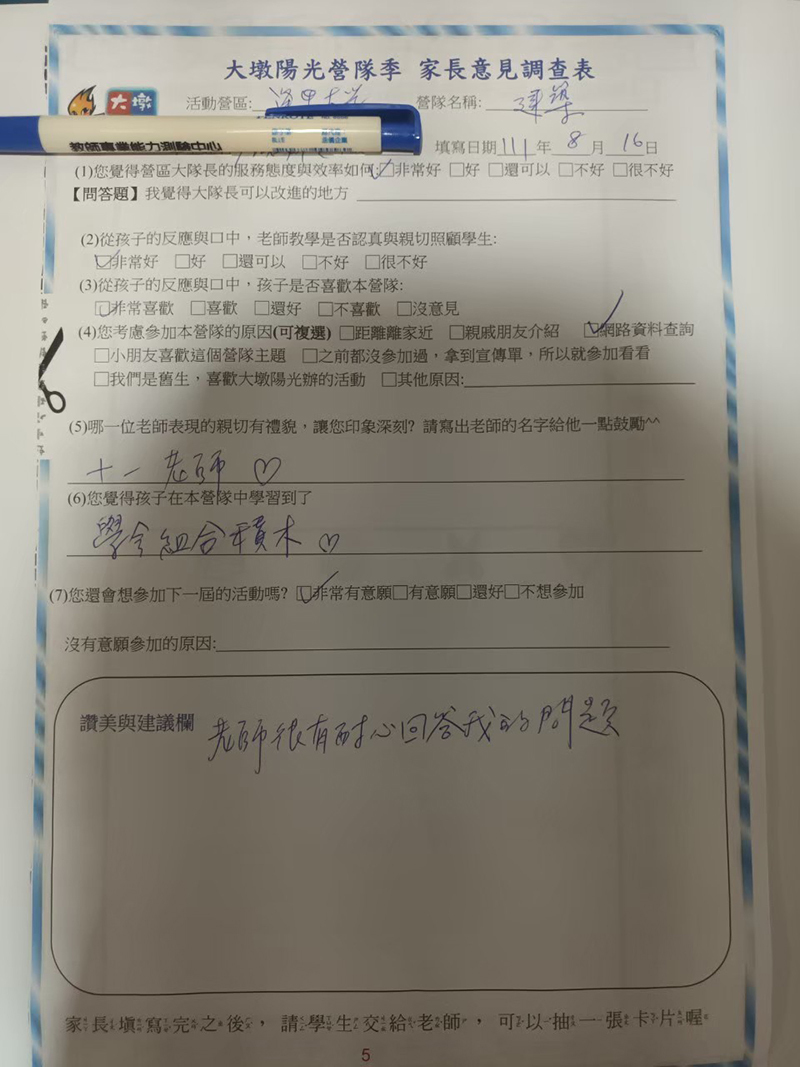 大墩陽光營隊季 家長意見調查表
大墩
活動營區: 逢甲大學 營隊名稱: 建築
教師專業能力測驗中心
填寫日期111年8月16日
(1)您覺得營區大隊長的服務態度與效率如何:☑非常好 □好 □還可以 □不好 □很不好
【問答題】我覺得大隊長可以改進的地方
(2)從孩子的反應與口中，老師教學是否認真與親切照顧學生:
☑非常好 □好 □還可以 □不好 □很不好
(3)從孩子的反應與口中，孩子是否喜歡本營隊:
☑非常喜歡 □喜歡 □還好 □不喜歡 □沒意見
(4)您考慮參加本營隊的原因(可複選) □距離離家近 □親戚朋友介紹 ☑網路資料查詢
□小朋友喜歡這個營隊主題 □之前都沒參加過，拿到宣傳單，所以就參加看看
□我們是舊生，喜歡大墩陽光辦的活動 □其他原因:
(5)哪一位老師表現的親切有禮貌，讓您印象深刻? 請寫出老師的名字給他一點鼓勵^^
十一老師♡
(6)您覺得孩子在本營隊中學習到了
學會組合積木♡
(7)您還會想參加下一屆的活動嗎? ☑非常有意願□有意願□還好□不想參加
沒有意願參加的原因:
讚美與建議欄 老師很有耐心回答我的問題
家長填寫完之後，請學生交給老師，可以抽一張卡片喔
5